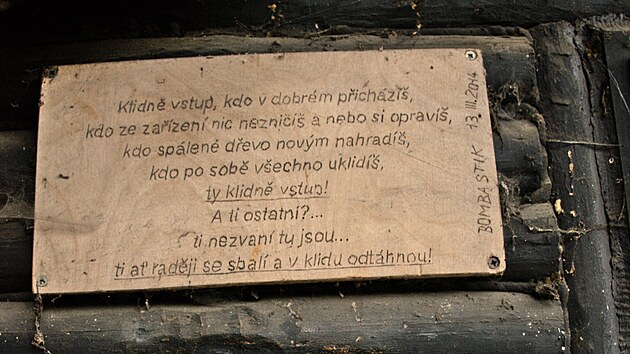 Klidně vstup, kdo v dobrém přicházíš,
kdo ze zařízení nic nezničíš a nebo si opravíš,
kdo spálené dřevo novým nahradíš,
kdo po sobě všechno uklidíš,
ty klidně vstup!
A ti ostatní?...
ti nezvaní tu jsou...
ti ať raději se sbalí a v klidu odtáhnou!
BOMBASTIK 13.III.2014